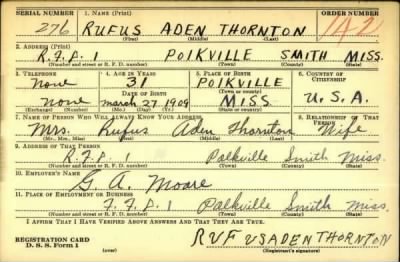 SERIAL NUMBER 1. NAME (Print) ORDER NUMBER
276 RUFUS ADEN THORNTON 142
(First) (Middle) (Last)
2. ADDRESS (Print)
R.F.D. 1 POLKVILLE SMITH MISS.
(Number and street or R. F. D. number) (Town) (County) (State)
3. TELEPHONE 4. AGE IN YEARS 5. PLACE OF BIRTH 6. COUNTRY OF CITIZENSHIP
None 31 POLKVILLE
DATE OF BIRTH (Town or county)
None March 27 1909 MISS. U.S.A.
(Exchange) (Number) (Mo.) (Day) (Yr.) (State or country)
7. NAME OF PERSON WHO WILL ALWAYS KNOW YOUR ADDRESS 8. RELATIONSHIP OF THAT PERSON
Mrs. Rufus Aden Thornton Wife
(Mr., Mrs., Miss) (First) (Middle) (Last)
9. ADDRESS OF THAT PERSON
R.F.D. 1 Polkville Smith Miss.
(Number and street or R. F. D. number) (Town) (County) (State)
10. EMPLOYER'S NAME
G. A. Moore
11. PLACE OF EMPLOYMENT OR BUSINESS
F.F.D. 1 Polkville Smith Miss.
(Number and street or R. F. D. number) (Town) (County) (State)
I AFFIRM THAT I HAVE VERIFIED ABOVE ANSWERS AND THAT THEY ARE TRUE.
REGISTRATION CARD
D. S. S. Form 1 (over) RUFUSADENTHORNTON
(Registrant's signature)